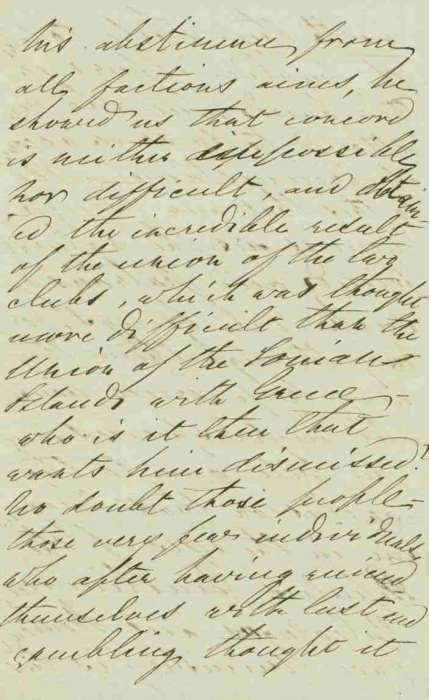 his abstinence from
all factious aims, he
showed us that concord
is neither impossible
nor difficult, and obtain-
ed the incredible result
of the union of the two
clubs, which was thought
more difficult than the
Union of the Ionian
Islands with Greece –
who is it then that
wants him dismissed?
No doubt those people –
those very few individuals,
who after having ruined
themselves with lust and
gambling, thought it